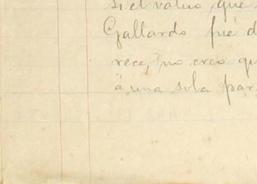 si el valuo, que
Gallardo fué d
rece, no creo qu
á una sola par